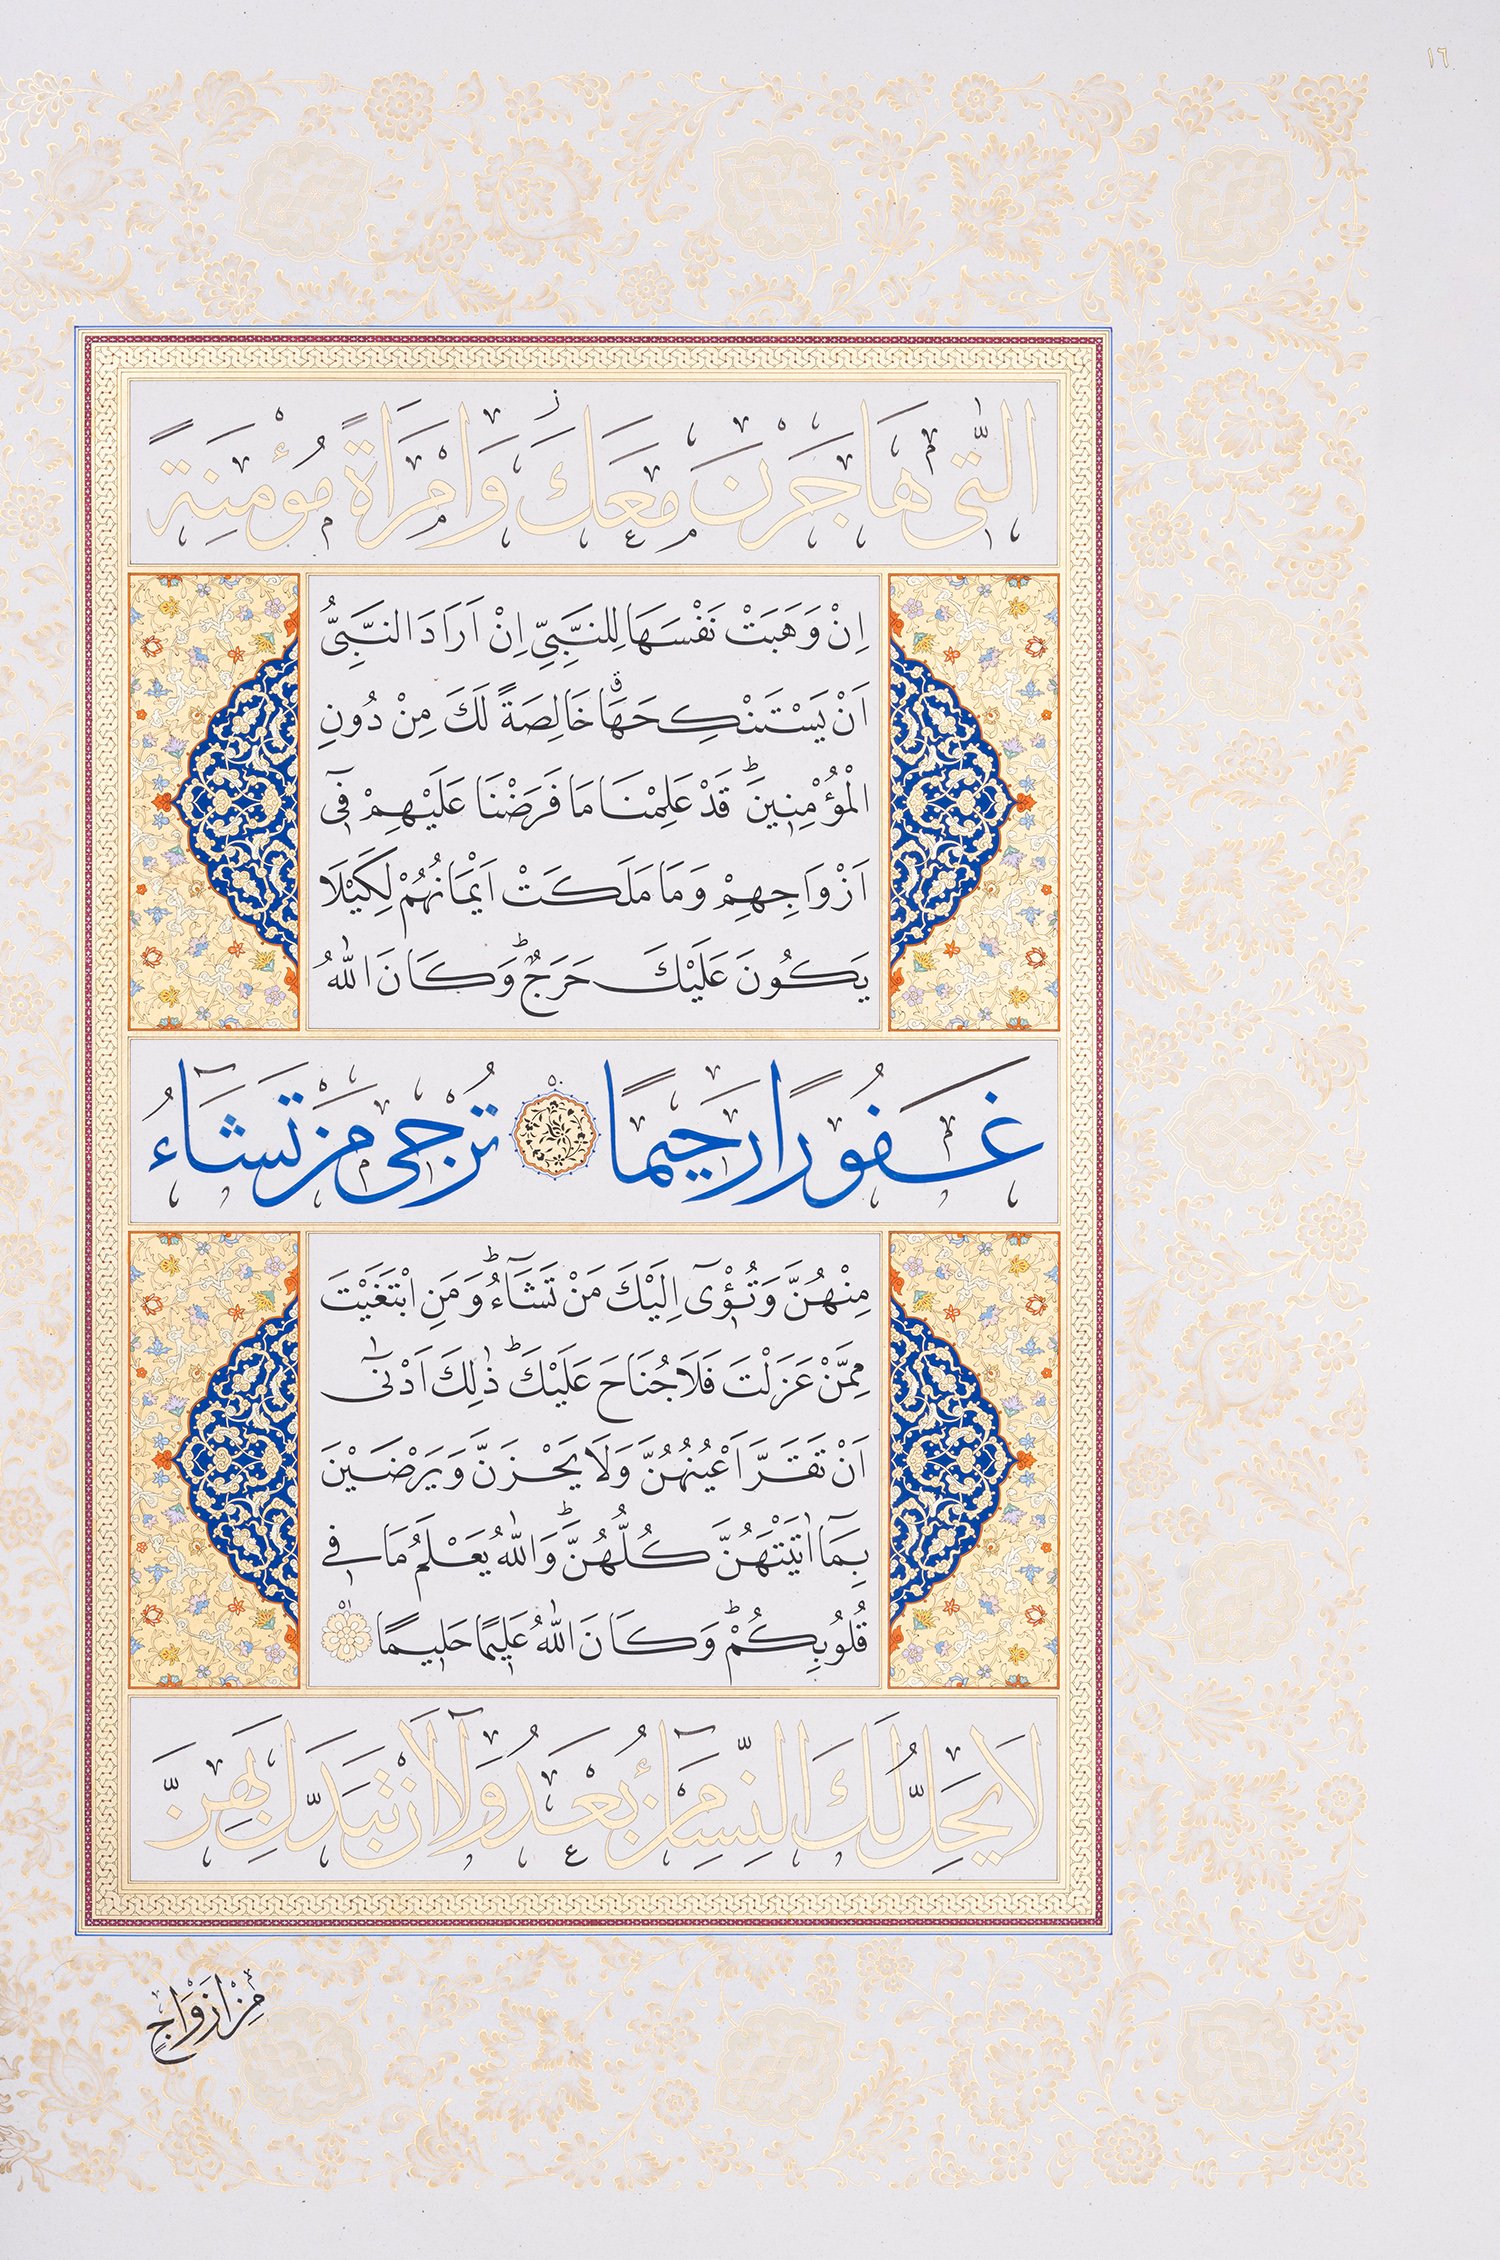 ١٦
الّٰتٖى هَاجَرْنَ مَعَكَ وَامْرَاَةً مُؤْمِنَةً
اِنْ وَهَبَتْ نَفْسَهَا لِلنَّبِىِّ اِنْ اَرَادَ النَّبِىُّ
اَنْ يَسْتَنْكِحَهَا خَالِصَةً لَكَ مِنْ دُونِ
الْمُؤْمِنٖينَ قَدْ عَلِمْنَا مَا فَرَضْنَا عَلَيْهِمْ فٖٓى
اَزْوَاجِهِمْ وَمَا مَلَكَتْ اَيْمَانُهُمْ لِكَيْلَا
يَكُونَ عَلَيْكَ حَرَجٌ وَكَانَ اللّٰهُ
غَفُورًا رَحٖيمًا تُرْجٖى مَنْ تَشَٓاءُ
مِنْهُنَّ وَتُـْٔوٖٓى اِلَيْكَ مَنْ تَشَٓاءُ وَمَنِ ابْتَغَيْتَ
مِمَّنْ عَزَلْتَ فَلَا جُنَاحَ عَلَيْكَ ذٰلِكَ اَدْنٰٓى
اَنْ تَقَرَّ اَعْيُنُهُنَّ وَلَا يَحْزَنَّ وَيَرْضَيْنَ
بِمَٓا اٰتَيْتَهُنَّ كُلُّهُنَّ وَاللّٰهُ يَعْلَمُ مَا فٖى
قُلُوبِكُمْ وَكَانَ اللّٰهُ عَلٖيمًا حَلٖيمًا
لَا يَحِلُّ لَكَ النِّسَٓاءُ مِنْ بَعْدُ وَلَٓا اَنْ تَبَدَّلَ بِهِنَّ
مِنْ اَزْوَاجٍ